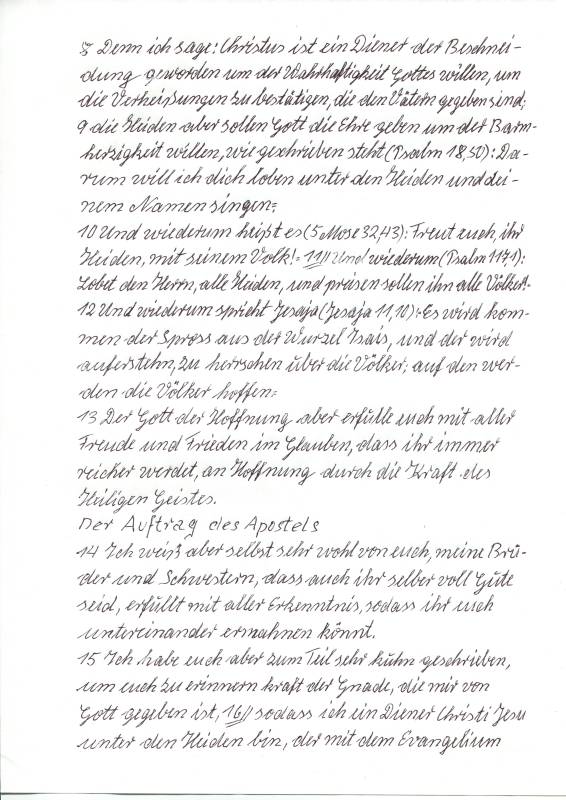 8 Denn ich sage: Christus ist ein Diener der Beschnei-
dung geworden um der Wahrhaftigkeit Gottes willen, um
die Verheißungen zu bestätigen, die den Vätern gegeben sind;
9 die Heiden aber sollen Gott die Ehre geben um der Barm-
herzigkeit willen, wie geschrieben steht (Psalm 18,50): Da-
rum will ich dich loben unter den Heiden und dei-
nem Namen singen.
10 Und wiederum heißt es (5 Mose 32,43): Freut euch, ihr
Heiden, mit seinem Volk! 11// Und wiederum (Psalm 117,1):
Lobet den Herrn, alle Heiden, und preisen sollen ihn alle Völker!
12 Und wiederum spricht Jesaja (Jesaja 11,10): Es wird kom-
men der Spross aus der Wurzel Isais, und der wird
auferstehn, zu herrschen über die Völker; auf den wer-
den die Völker hoffen.
13 Der Gott der Hoffnung aber erfülle euch mit aller
Freude und Frieden im Glauben, dass ihr immer
reicher werdet, an Hoffnung durch die Kraft des
Heiligen Geistes.
Der Auftrag des Apostels
14 Ich weiß aber selbst sehr wohl von euch, meine Brü-
der und Schwestern, dass auch ihr selber voll Güte
seid, erfüllt mit aller Erkenntnis, sodass ihr euch
untereinander ermahnen könnt.
15 Ich habe euch aber zum Teil sehr kühn geschrieben,
um euch zu erinnern kraft der Gnade, die mir von
Gott gegeben ist, 16// sodass ich ein Diener Christi Jesu
unter den Heiden bin, der mit dem Evangelium